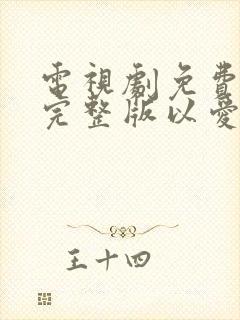 電視劇免費
完整版以愛
王十四